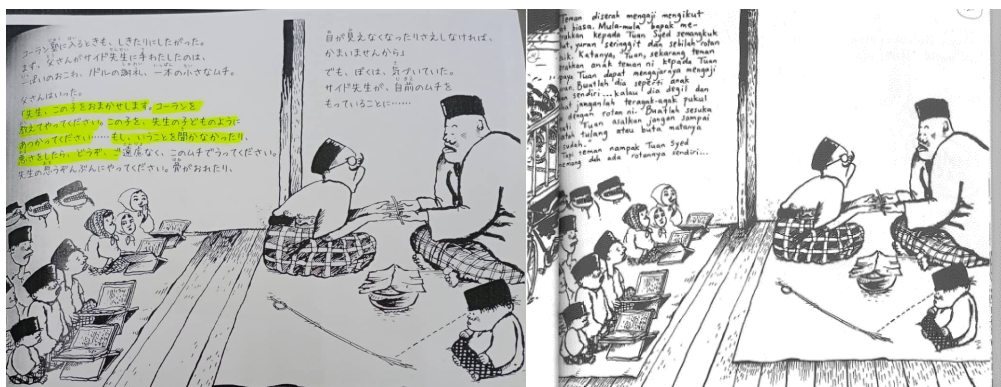 コーラン塾に入るときも、しきたりにしたがった。
まず、父さんがサイド先生に手わたしたのは、
いっぱいのおこわ、1ドルの謝礼、一本の小さなムチ。
父さんはいった。
「先生、この子をおまかせします。コーランを
教えてやってください。この子を、先生の子どものように
あつかってください……もし、いうことを聞かなかったり、
悪さをしたら、どうぞ、ご遠慮なく、このムチでうってください。
先生の思うぞんぶんにやってください。骨がおれたり、
目が見えなくなったりさえしなければ、
かまいませんから」
でも、ぼくは、気づいていた。
サイド先生が、自前のムチを
もっていることに……
Teman diserah mengaji mengikut
biasa. Mula-mula bapak me-
rahkan kepada Tuan Syed semangkuk
yuran seringgit dan sebilah rotan
Katanya, Tuan, sekarang teman
rahkan anak teman ni kepada Tuan
Tuan dapat mengajarnya mengaji
Buatlah dia seperti anak
sendiri... kalau dia degil dan
janganlah teragak-agak pukul
dengan rotan ni. Buatlah sesuka
Tuan asalkan jangan sampai
tulang atau buta matanya
sudah."
Tapi teman nampak Tuan Syed
memang dah ada rotannya sendiri...